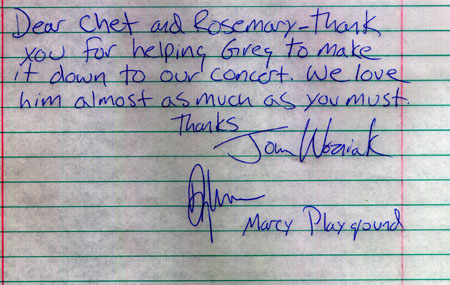 Dear Chet and Rosemary - Thank
you for helping Greg to make
it down to our concert. We love
him almost as much as you must.
Thanks
John Wozniak
Marcy Playground